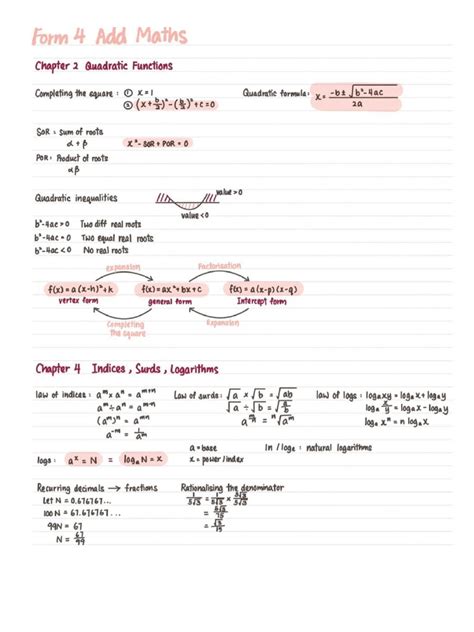 Form 4 Add Maths
Chapter 2 Quadratic Functions
Completing the square : ① x = 1
② (x + b/2)² - (b/2)² + c = 0
Quadratic formula: x = -b ± √b² - 4ac / 2a
SOR : sum of roots
α + β
x² - SOR + POR = 0
POR : Product of roots
αβ
Quadratic inequalities
value > 0
value < 0
b² - 4ac > 0 Two diff real roots
b² - 4ac = 0 Two equal real roots
b² - 4ac < 0 No real roots
Expansion
Factorisation
f(x) = a(x-h)² + k
f(x) = ax² + bx + c
f(x) = a(x-p)(x-q)
vertex form
general form
Intercept form
Completing the square
Expansion
Chapter 4 Indices, Surds, Logarithms
law of indices : aᵐ × aⁿ = aᵐ⁺ⁿ
aᵐ ÷ aⁿ = aᵐ⁻ⁿ
(aᵐ)ⁿ = aᵐⁿ
a⁻ᵐ = 1/aᵐ
Law of surds: √a × √b = √ab
√a ÷ √b = √a/b
law of logs : logₐxy = logₐx + logₐy
logₐ x/y = logₐx - logₐy
logₐxⁿ = n logₐx
logs : aˣ = N = logₐN = x
a = base
x = power/index
ln / logₑ : natural logarithms
Recurring decimals → fractions
Let N = 0.676767...
100N = 67.676767...
99N = 67
N = 67/99
Rationalising the denominator
1/5√3 = 1/5√3 × 5√3/5√3
= 5√3/75
= √3/15